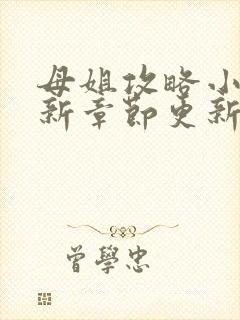 母姐攻略小
新章節更新
曾學忠